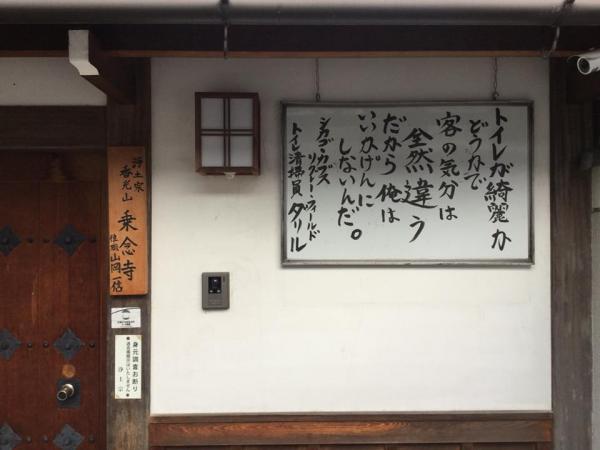 トイレが綺麗か
どうかで
客の気分は
全然違う
だから俺は
いいかげんに
しないんだ。
シカゴ・カブス
リグレー・フィールド
トイレ清掃員 ダリル
浄土宗
香光山
乗念寺
住職 山岡一信
身元調査お断り
●過去帳開示はいたしません●
浄土宗